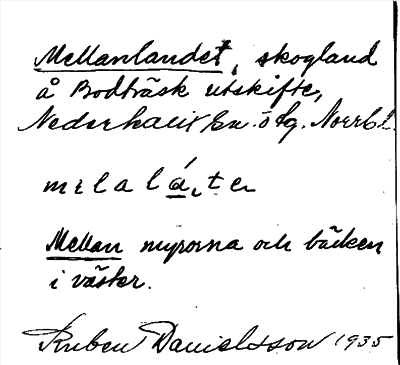 Mellanlandet, skogland
å Bodträsk utskifte,
Nederkalix sn. ö tg. Norrb. l.
melalá̱ₜter
Mellan myrorna och bäcken
i väster.
Ruben Danielsson 1935